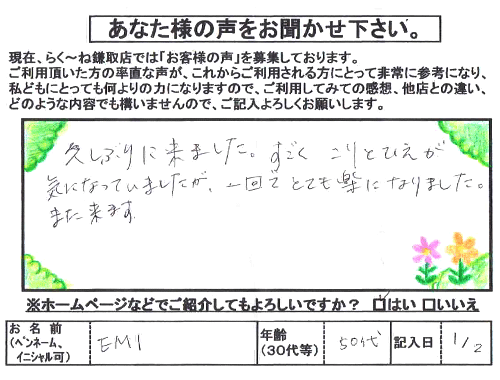 あなた様の声をお聞かせ下さい。
現在、らく〜ね鎌取店では「お客様の声」を募集しております。
ご利用頂いた方の率直な声が、これからご利用される方にとって非常に参考になり、
私どもにとっても何よりの力になりますので、ご利用してみての感想、他店との違い、
どのような内容でも構いませんので、ご記入よろしくお願いします。
久しぶりに来ました。すごく こりとひえが
気になっていましたが、一回で とても楽になりました。
また来ます。
※ホームページなどでご紹介してもよろしいですか? ☑はい □いいえ
お名前
(ペンネーム、
イニシャル可)
EMI
年齢
(30代等)
50代
記入日
1/2